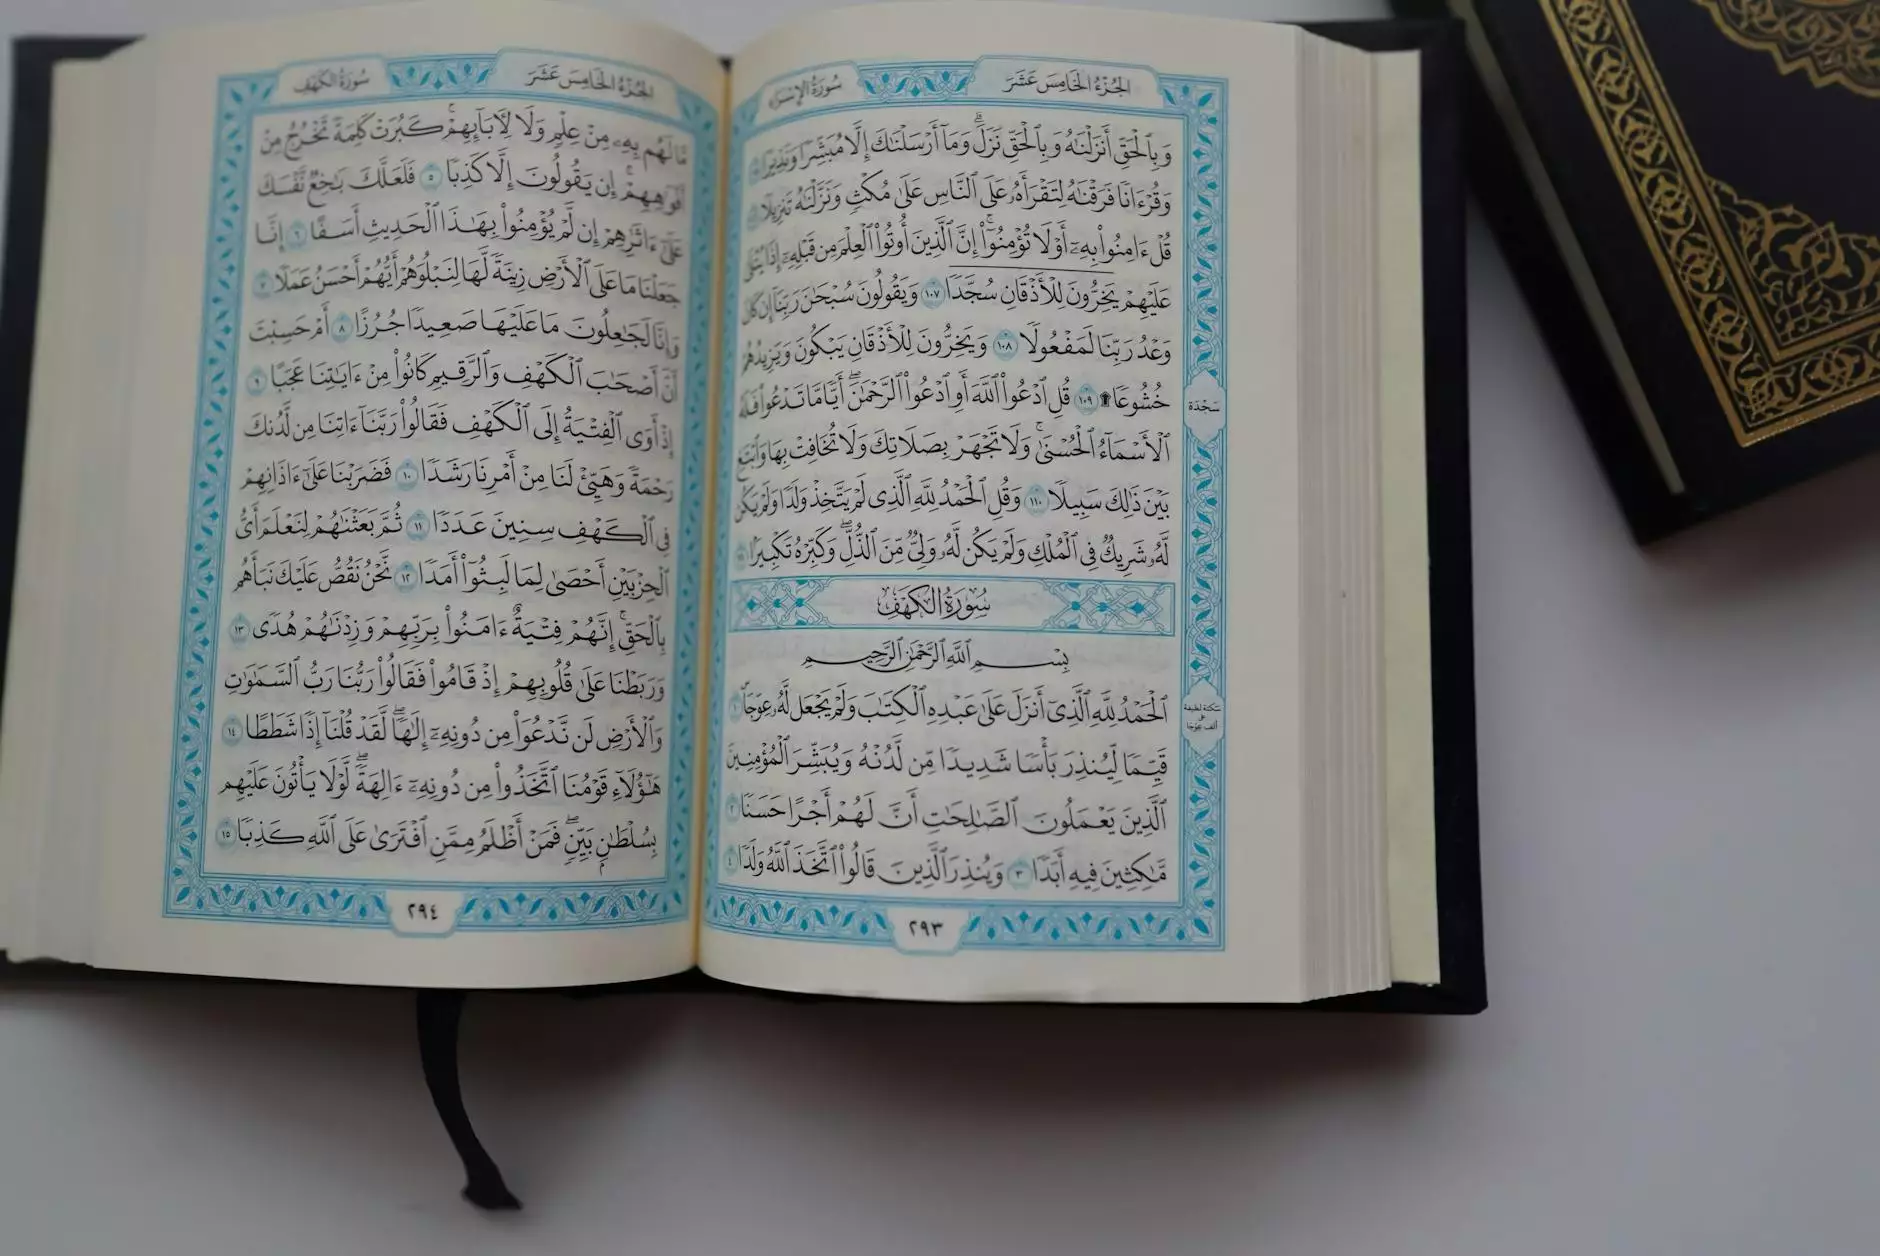 الجُزْءُ الخَامِسَ عَشَرَ
سُورَةُ الإِسْرَاءِ
وَبِٱلْحَقِّ أَنزَلْنَٰهُ وَبِٱلْحَقِّ نَزَلَۗ وَمَآ أَرْسَلْنَٰكَ إِلَّا مُبَشِّرًا وَنَذِيرًا ١٠٥
وَقُرْءَانًا فَرَقْنَٰهُ لِتَقْرَأَهُۥ عَلَى ٱلنَّاسِ عَلَىٰ مُكْثٍ وَنَزَّلْنَٰهُ تَنزِيلًا ١٠٦
قُلْ ءَامِنُوا۟ بِهِۦٓ أَوْ لَا تُؤْمِنُوٓا۟ۚ إِنَّ ٱلَّذِينَ أُوتُوا۟ ٱلْعِلْمَ مِن قَبْلِهِۦٓ إِذَا يُتْلَىٰ
عَلَيْهِمْ يَخِرُّونَ لِلْأَذْقَانِ سُجَّدًا ١٠٧ وَيَقُولُونَ سُبْحَٰنَ رَبِّنَآ إِن كَانَ
وَعْدُ رَبِّنَا لَمَفْعُولًا ١٠٨ وَيَخِرُّونَ لِلْأَذْقَانِ يَبْكُونَ وَيَزِيدُهُمْ
خُشُوعًا ۩ ١٠٩ قُلِ ٱدْعُوا۟ ٱللَّهَ أَوِ ٱدْعُوا۟ ٱلرَّحْمَٰنَۖ أَيًّا مَّا تَدْعُوا۟ فَلَهُ
سَجْدَة
ٱلْأَسْمَآءُ ٱلْحُسْنَىٰۚ وَلَا تَجْهَرْ بِصَلَاتِكَ وَلَا تُخَافِتْ بِهَا وَٱبْتَغِ
بَيْنَ ذَٰلِكَ سَبِيلًا ١١٠ وَقُلِ ٱلْحَمْدُ لِلَّهِ ٱلَّذِى لَمْ يَتَّخِذْ وَلَدًا وَلَمْ يَكُن
لَّهُۥ شَرِيكٌ فِى ٱلْمُلْكِ وَلَمْ يَكُن لَّهُۥ وَلِىٌّ مِّنَ ٱلذُّلِّۖ وَكَبِّرْهُ تَكْبِيرًۢا ١١١
سُورَةُ الكَهْفِ
بِسْمِ ٱللَّهِ ٱلرَّحْمَٰنِ ٱلرَّحِيمِ
ٱلْحَمْدُ لِلَّهِ ٱلَّذِىٓ أَنزَلَ عَلَىٰ عَبْدِهِ ٱلْكِتَٰبَ وَلَمْ يَجْعَل لَّهُۥ عِوَجَاۜ ١
سكتة لطيفة
على
ألف عوجا
قَيِّمًا لِّيُنذِرَ بَأْسًا شَدِيدًا مِّن لَّدُنْهُ وَيُبَشِّرَ ٱلْمُؤْمِنِينَ
ٱلَّذِينَ يَعْمَلُونَ ٱلصَّٰلِحَٰتِ أَنَّ لَهُمْ أَجْرًا حَسَنًا ٢
مَّٰكِثِينَ فِيهِ أَبَدًا ٣ وَيُنذِرَ ٱلَّذِينَ قَالُوا۟ ٱتَّخَذَ ٱللَّهُ وَلَدًا ٤
٢٩٣
الجُزْءُ الخَامِسَ عَشَرَ
سُورَةُ الكَهْفِ
مَّا لَهُم بِهِۦ مِنْ عِلْمٍ وَلَا لِءَابَآئِهِمْۚ كَبُرَتْ كَلِمَةً تَخْرُجُ مِنْ
أَفْوَٰهِهِمْۚ إِن يَقُولُونَ إِلَّا كَذِبًا ٥ فَلَعَلَّكَ بَٰخِعٌ نَّفْسَكَ
عَلَىٰٓ ءَاثَٰرِهِمْ إِن لَّمْ يُؤْمِنُوا۟ بِهَٰذَا ٱلْحَدِيثِ أَسَفًا ٦ إِنَّا
جَعَلْنَا مَا عَلَى ٱلْأَرْضِ زِينَةً لَّهَا لِنَبْلُوَهُمْ أَيُّهُمْ أَحْسَنُ عَمَلًا ٧
وَإِنَّا لَجَٰعِلُونَ مَا عَلَيْهَا صَعِيدًا جُرُزًا ٨ أَمْ حَسِبْتَ
أَنَّ أَصْحَٰبَ ٱلْكَهْفِ وَٱلرَّقِيمِ كَانُوا۟ مِنْ ءَايَٰتِنَا عَجَبًا ٩
إِذْ أَوَى ٱلْفِتْيَةُ إِلَى ٱلْكَهْفِ فَقَالُوا۟ رَبَّنَآ ءَاتِنَا مِن لَّدُنكَ
رَحْمَةً وَهَيِّئْ لَنَا مِنْ أَمْرِنَا رَشَدًا ١٠ فَضَرَبْنَا عَلَىٰٓ ءَاذَانِهِمْ
فِى ٱلْكَهْفِ سِنِينَ عَدَدًا ١١ ثُمَّ بَعَثْنَٰهُمْ لِنَعْلَمَ أَىُّ
ٱلْحِزْبَيْنِ أَحْصَىٰ لِمَا لَبِثُوٓا۟ أَمَدًا ١٢ نَّحْنُ نَقُصُّ عَلَيْكَ نَبَأَهُم
بِٱلْحَقِّۚ إِنَّهُمْ فِتْيَةٌ ءَامَنُوا۟ بِرَبِّهِمْ وَزِدْنَٰهُمْ هُدًى ١٣
وَرَبَطْنَا عَلَىٰ قُلُوبِهِمْ إِذْ قَامُوا۟ فَقَالُوا۟ رَبُّنَا رَبُّ ٱلسَّمَٰوَٰتِ
وَٱلْأَرْضِ لَن نَّدْعُوَا۟ مِن دُونِهِۦٓ إِلَٰهًاۖ لَّقَدْ قُلْنَآ إِذًا شَطَطًا ١٤
هَٰٓؤُلَآءِ قَوْمُنَا ٱتَّخَذُوا۟ مِن دُونِهِۦٓ ءَالِهَةًۖ لَّوْلَا يَأْتُونَ عَلَيْهِم
بِسُلْطَٰنٍۭ بَيِّنٍۖ فَمَنْ أَظْلَمُ مِمَّنِ ٱفْتَرَىٰ عَلَى ٱللَّهِ كَذِبًا ١٥
٢٩٤